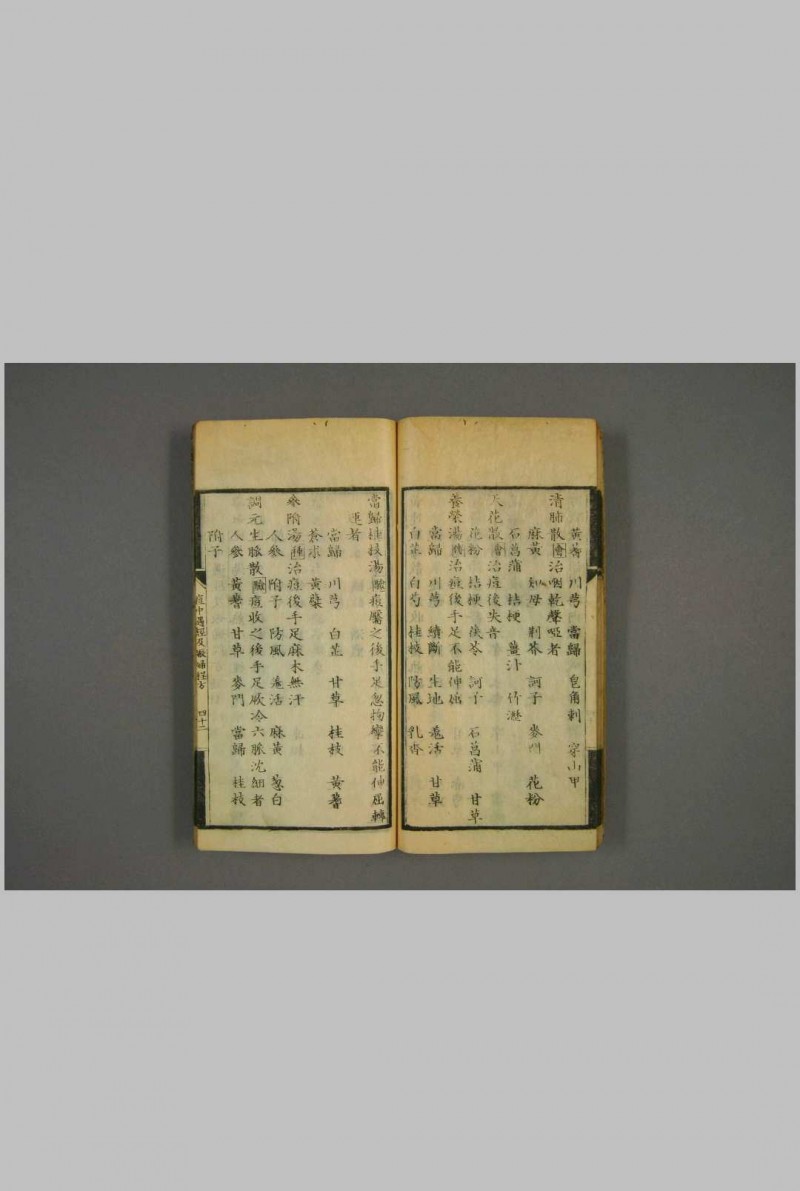 黃芪 川芎 當歸 皂角刺 穿山甲
清肺散治咽乾聲啞者
麻黃 知母 荆芥 訶子 麥門 花粉
石菖蒲 桔梗 薑汁 竹瀝
天花散治痘後失音
花粉 桔梗 茯苓 訶子 石菖蒲 甘草
養榮湯治痘後手足不能伸屈
當歸 川芎 續斷 生地 羌活 甘草
白芷 白芍 桂枝 防風 乳香
當歸桂枝湯痘靨之後手足忽拘攣不能伸屈轉
運者
當歸 川芎 白芷 甘草 桂枝 黃芪
蒼朮 黃蘗
參附湯治痘後手足麻木無汗
人參 附子 防風 羌活 麻黃 葱白
調元生脈散痘收之後手足厥冷六脈沈細者
人參 黃芪 甘草 麥門 當歸 桂枝
附子
四十二